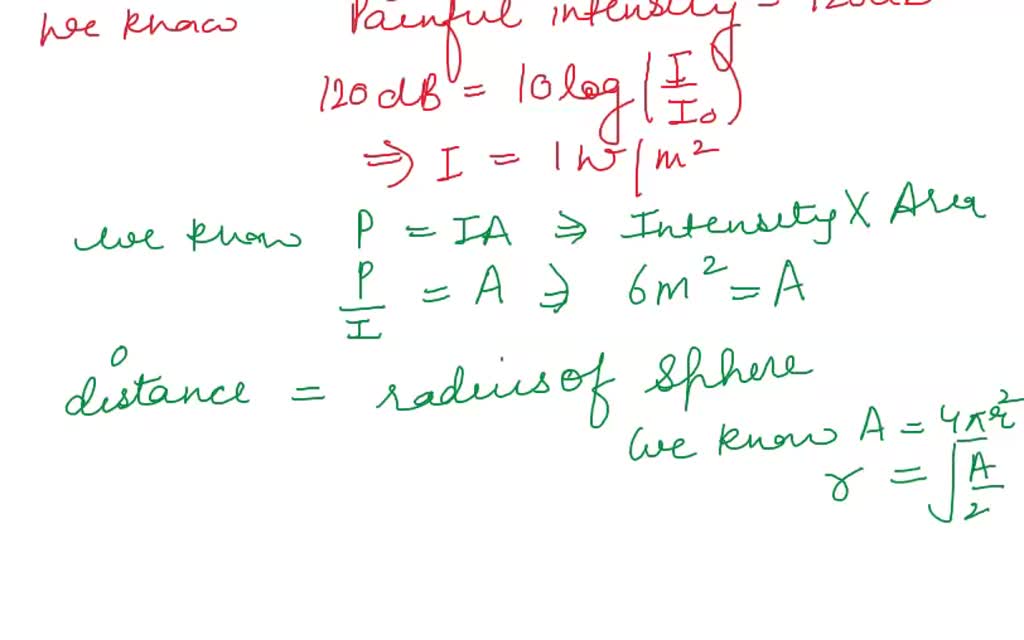 We know Painful intensity = 120dB
120 dB = 10 log (I/I₀)
⇒ I = 1 W/m²
we know P = IA ⇒ Intensity X Area
P/I = A ⇒ 6m² = A
distance = radius of sphere
We know A = 4πr²
r = √A/2